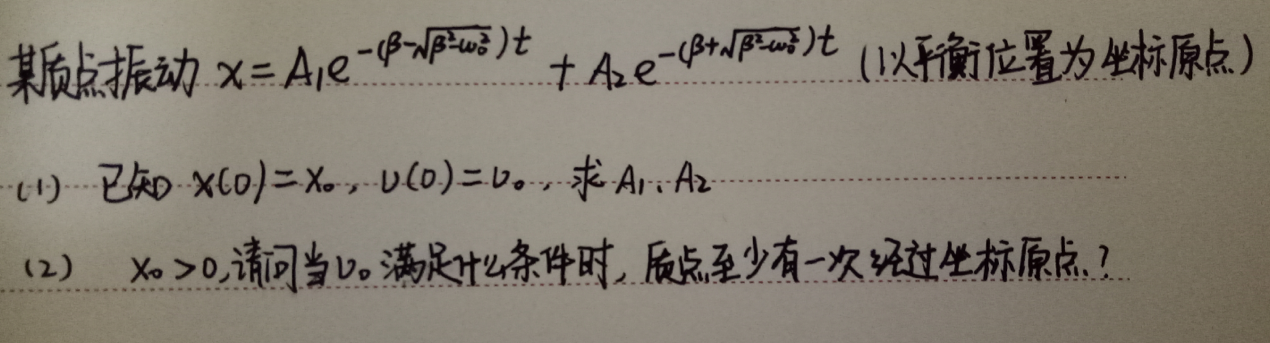 某质点振动 x=A₁e^{-(β-√(β²-ω₀²))t} + A₂e^{-(β+√(β²-ω₀²))t} (以平衡位置为坐标原点)
(1) 已知 x(0)=x₀, υ(0)=υ₀, 求 A₁、A₂
(2) x₀>0,请问当υ₀满足什么条件时, 质点至少有一次经过坐标原点?